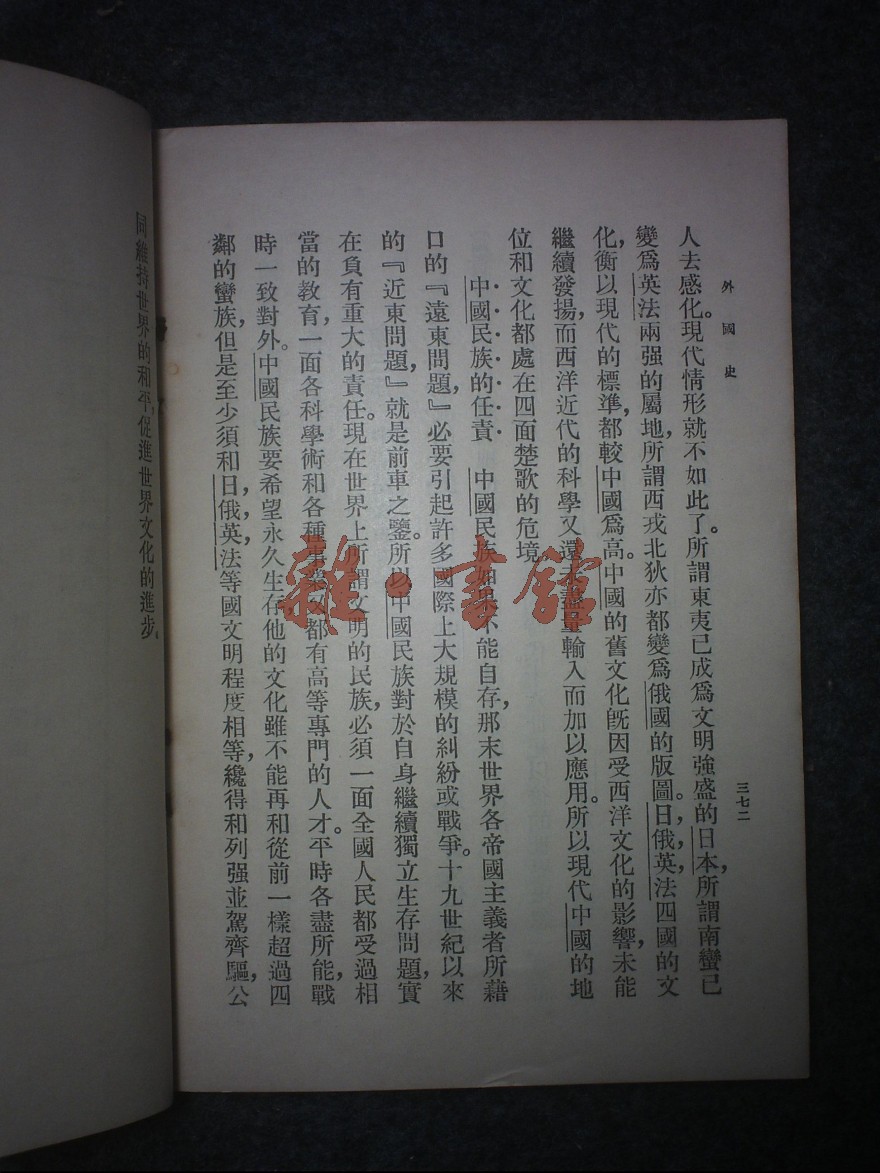 外國史
三七二
人去感化。現代情形就不如此了。所謂東夷已成爲文明強盛的日本,所謂南蠻已
變爲英法兩强的屬地,所謂西戎北狄亦都變爲俄國的版圖。日,俄,英,法四國的文
化,衡以現代的標準,都較中國爲高。中國的舊文化旣因受西洋文化的影響,未能
繼續發揚,而西洋近代的科學又還未盡量輸入而加以應用。所以現代中國的地
位和文化都處在四面楚歌的危境。
中國民族的任責 中國民族如果不能自存,那末世界各帝國主義者所藉
口的『遠東問題,』必要引起許多國際上大規模的糾紛或戰爭。十九世紀以來
的『近東問題,』就是前車之鑒。所以中國民族對於自身繼續獨立生存問題,實
在負有重大的責任。現在世界上所謂文明的民族,必須一面全國人民都受過相
當的教育,一面各科學術和各種事業又都有高等專門的人才。平時各盡所能,戰
時一致對外。中國民族要希望永久生存,他的文化雖不能再和從前一樣超過四
鄰的蠻族,但是至少須和日,俄,英,法等國文明程度相等,纔得和列强並駕齊驅,公
同維持世界的和平,促進世界文化的進步。
雜·書館